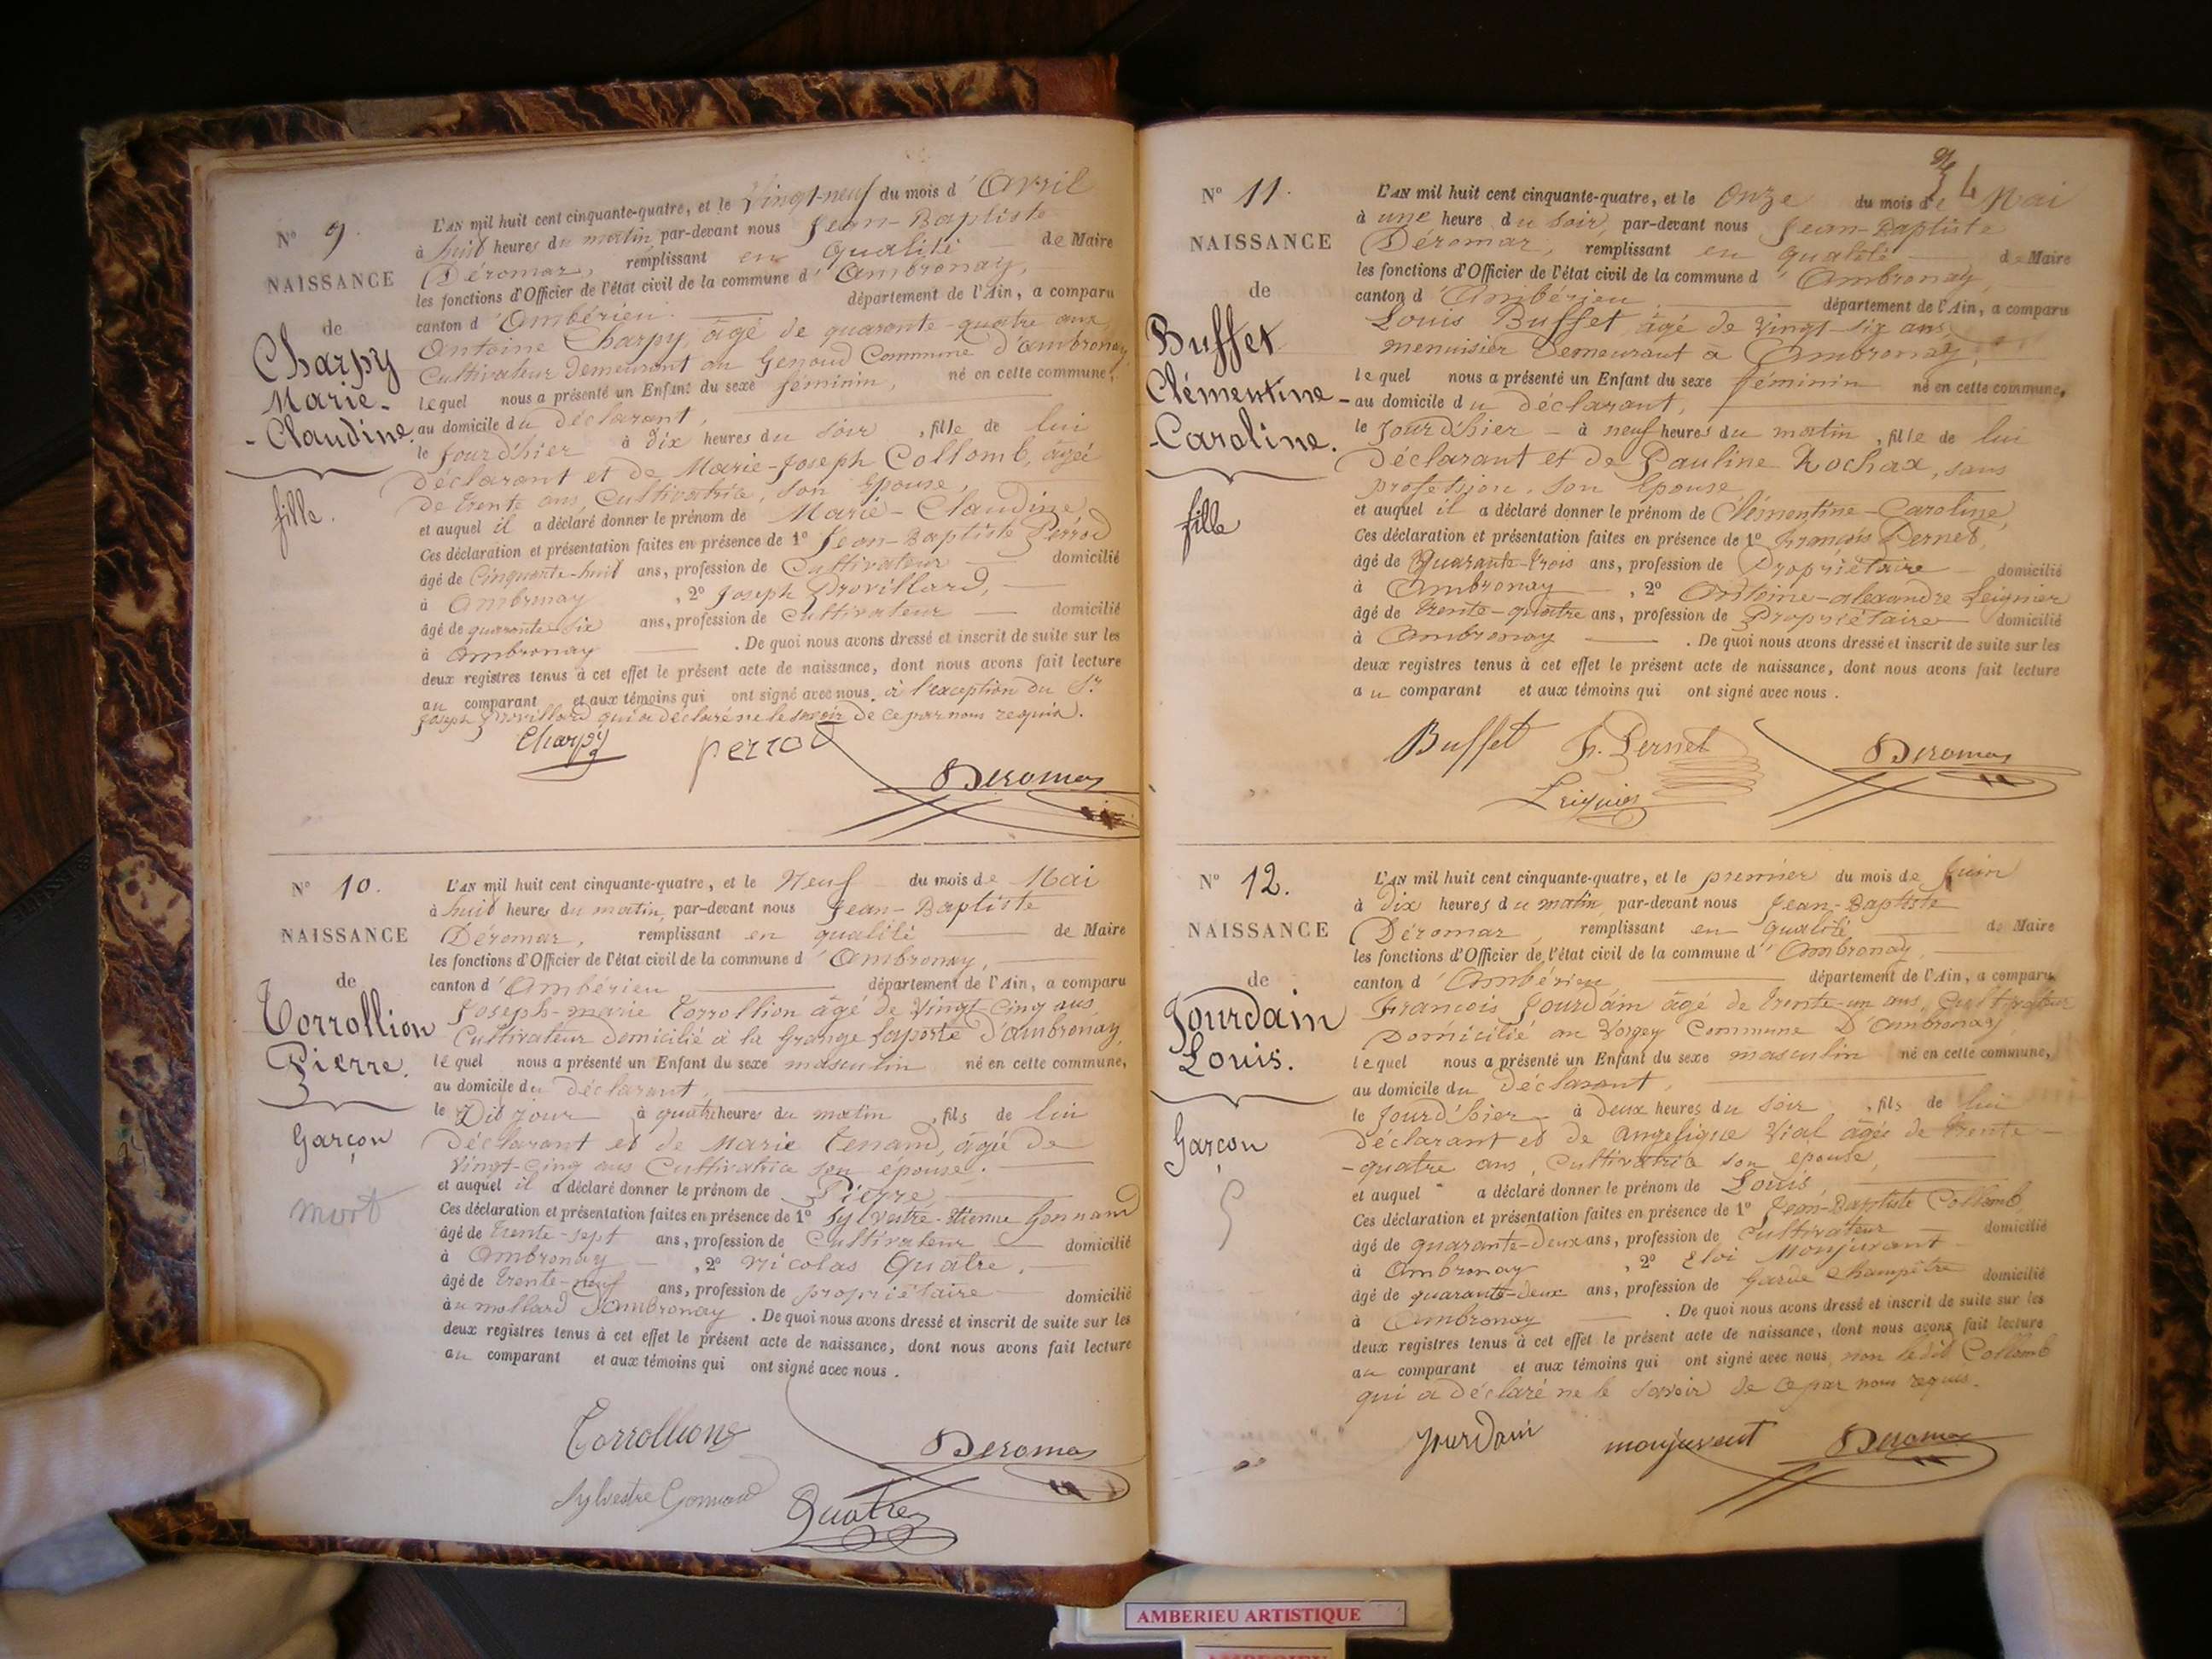 N° 9.
NAISSANCE
de
Charpy
Marie-
-Claudine.
fille.
L'AN mil huit cent cinquante-quatre, et le Vingt-neuf du mois d'Avril
à huit heures du matin, par-devant nous Jean-Baptiste
Déromas, remplissant en qualité de Maire
les fonctions d'Officier de l'état civil de la commune d'Ambronay,
canton d'Ambérieu. département de l'Ain, a comparu
Antoine Charpy, âgé de quarante-quatre ans,
Cultivateur demeurant au Genoud Commune d'ambronay,
lequel nous a présenté un Enfant du sexe féminin, né en cette commune,
au domicile du déclarant,
le Jour d'hier à dix heures du soir, fille de lui
déclarant et de Marie-Joseph Collomb, âgée
de trente ans, Cultivatrice, son épouse,
et auquel il a déclaré donner le prénom de Marie-Claudine,
Ces déclaration et présentation faites en présence de 1° Jean-Baptiste Perrod
âgé de Cinquante-huit ans, profession de Cultivateur domicilié
à Ambronay, 2° Joseph Provillard,
âgé de quarante-six ans, profession de Cultivateur domicilié
à Ambronay. De quoi nous avons dressé et inscrit de suite sur les
deux registres tenus à cet effet le présent acte de naissance, dont nous avons fait lecture
au comparant et aux témoins qui ont signé avec nous, à l'exception du Sr.
Joseph Provillard qui a déclaré ne le savoir de ce par nous requis.
Charpy perrod
Deromas
N° 10.
NAISSANCE
de
Torrollion
Pierre.
Garçon
mort
L'AN mil huit cent cinquante-quatre, et le Neuf du mois de Mai
à huit heures du matin, par-devant nous Jean-Baptiste
Déromas, remplissant en qualité de Maire
les fonctions d'Officier de l'état civil de la commune d'Ambronay,
canton d'Ambérieu département de l'Ain, a comparu
Joseph-marie Torrollion âgé de Vingt-Cinq ans,
Cultivateur domicilié à la Grange Laporte d'ambronay,
lequel nous a présenté un Enfant du sexe masculin né en cette commune,
au domicile du déclarant,
le Dit jour à quatre heures du matin, fils de lui
Déclarant et de Marie Tenand, âgée de
Vingt-Cinq ans Cultivatrice son épouse.
et auquel il a déclaré donner le prénom de Pierre
Ces déclaration et présentation faites en présence de 1° Sylvestre-Etienne Gonnand
âgé de trente-sept ans, profession de Cultivateur domicilié
à Ambronay, 2° Nicolas Quatre,
âgé de trente-neuf ans, profession de propriétaire domicilié
au mollard d'Ambronay. De quoi nous avons dressé et inscrit de suite sur les
deux registres tenus à cet effet le présent acte de naissance, dont nous avons fait lecture
au comparant et aux témoins qui ont signé avec nous.
Torrollion
Deromas
Sylvestre Gonnand Quatre
4
N° 11.
NAISSANCE
de
Buffet
Clémentine-
-Caroline.
fille
L'AN mil huit cent cinquante-quatre, et le Onze du mois de Mai
à une heure du soir, par-devant nous Jean-Baptiste
Déromas, remplissant en qualité de Maire
les fonctions d'Officier de l'état civil de la commune d'Ambronay,
canton d'Ambérieu département de l'Ain, a comparu
Louis Buffet âgé de Vingt-six ans,
menuisier demeurant à Ambronay,
lequel nous a présenté un Enfant du sexe féminin né en cette commune,
au domicile du déclarant,
le Jour d'hier à neuf heures du matin, fille de lui
déclarant et de Pauline Rochax, sans
profession, son épouse
et auquel il a déclaré donner le prénom de Clémentine-Caroline,
Ces déclaration et présentation faites en présence de 1° François Pernet,
âgé de Quarante-trois ans, profession de Propriétaire domicilié
à Ambronay, 2° Antoine-alexandre Leignier
âgé de trente-quatre ans, profession de Propriétaire domicilié
à Ambronay. De quoi nous avons dressé et inscrit de suite sur les
deux registres tenus à cet effet le présent acte de naissance, dont nous avons fait lecture
au comparant et aux témoins qui ont signé avec nous.
Buffet F. Pernet Deromas
Leignier
N° 12.
NAISSANCE
de
Jourdain
Louis.
Garçon
L'AN mil huit cent cinquante-quatre, et le premier du mois de Juin
à dix heures du matin, par-devant nous Jean-Baptiste
Déromas, remplissant en qualité de Maire
les fonctions d'Officier de l'état civil de la commune d'Ambronay,
canton d'Ambérieu département de l'Ain, a comparu
François Jourdain âgé de trente-un ans, Cultivateur
Domicilié au Vorgey Commune D'ambronay
lequel nous a présenté un Enfant du sexe masculin né en cette commune,
au domicile du déclarant,
le Jour d'hier à deux heures du soir, fils de lui
déclarant et de angelique Vial âgée de trente-
-quatre ans, Cultivatrice son épouse,
et auquel a déclaré donner le prénom de Louis,
Ces déclaration et présentation faites en présence de 1° Jean-Baptiste Collomb,
âgé de quarante-deux ans, profession de Cultivateur domicilié
à Ambronay, 2° Eloi Monjuvent
âgé de quarante-deux ans, profession de Garde Champêtre domicilié
à Ambronay. De quoi nous avons dressé et inscrit de suite sur les
deux registres tenus à cet effet le présent acte de naissance, dont nous avons fait lecture
au comparant et aux témoins qui ont signé avec nous, non le dit Collomb
qui a déclaré ne le savoir de ce par nous requis.
Jourdain monjuvent Deromas
AMBERIEU ARTISTIQUE